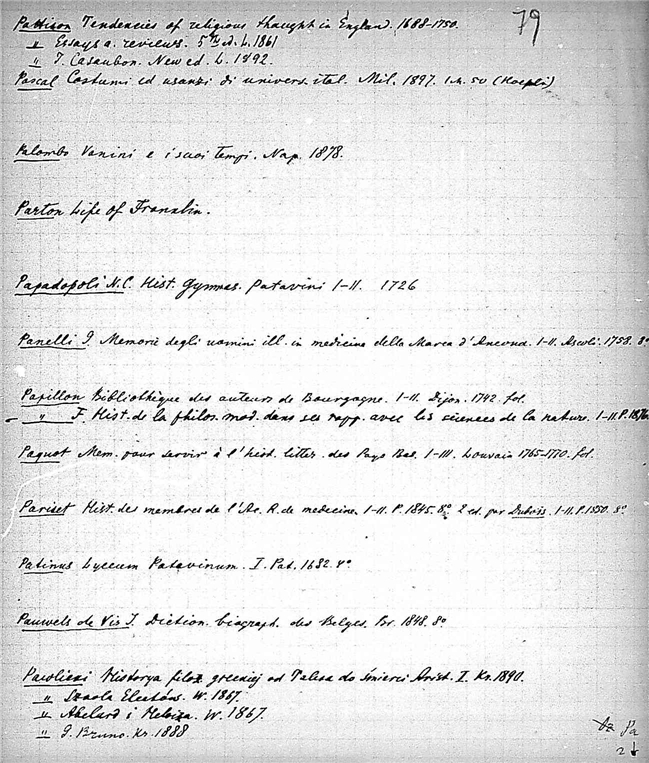 79
Pattison Tendencies of religious thought in England. 1688-1750.
" Essays a. reviews. 5th ed. L. 1861
" I. Casaubon. New ed. L. 1892.
Pascal Costumi ed usanzi di univers. ital. Mil. 1897. 1 M. 50 (Hoepli)
Palombo Vanini e i suoi tempi. Nap. 1878.
Parton Life of Franklin.
Papadopoli N.C. Hist. Gymnas. patavini I-II. 1726
Panelli G. Memorie degli uomini ill. in medicina della Marca d'Ancona. I-II. Ascoli. 1758. 8°
Papillon Bibliothèque des auteurs de Bourgogne. I-II. Dijon. 1742. fol.
" F. Hist. de la philos. mod. dans ses rapp. avec les sciences de la nature. I-II. P. 1876.
Paquot Mem. pour servir à l'hist. litter. des Pays Bas. I-III. Louvain 1765-1770. fol.
Pariset Hist. des membres de l'Ac. R. de medecine. I-II. P. 1845. 8°. 2 ed. par Dubois. I-II. P. 1850. 8°.
Patinus Lyceum Patavinum. I. Pat. 1682. 4°
Pauwels de Vis J. Diction. biograph. des Belges. Br. 1848. 8°
Pawlicki Historya filoz. greckiej od Talesa do śmierci Arist. I. Kr. 1890.
" Szkoła Eleatów. W. 1867.
" Abelard i Heloiza. W. 1867.
" G. Bruno. Kr. 1888
Pa
2 ↓